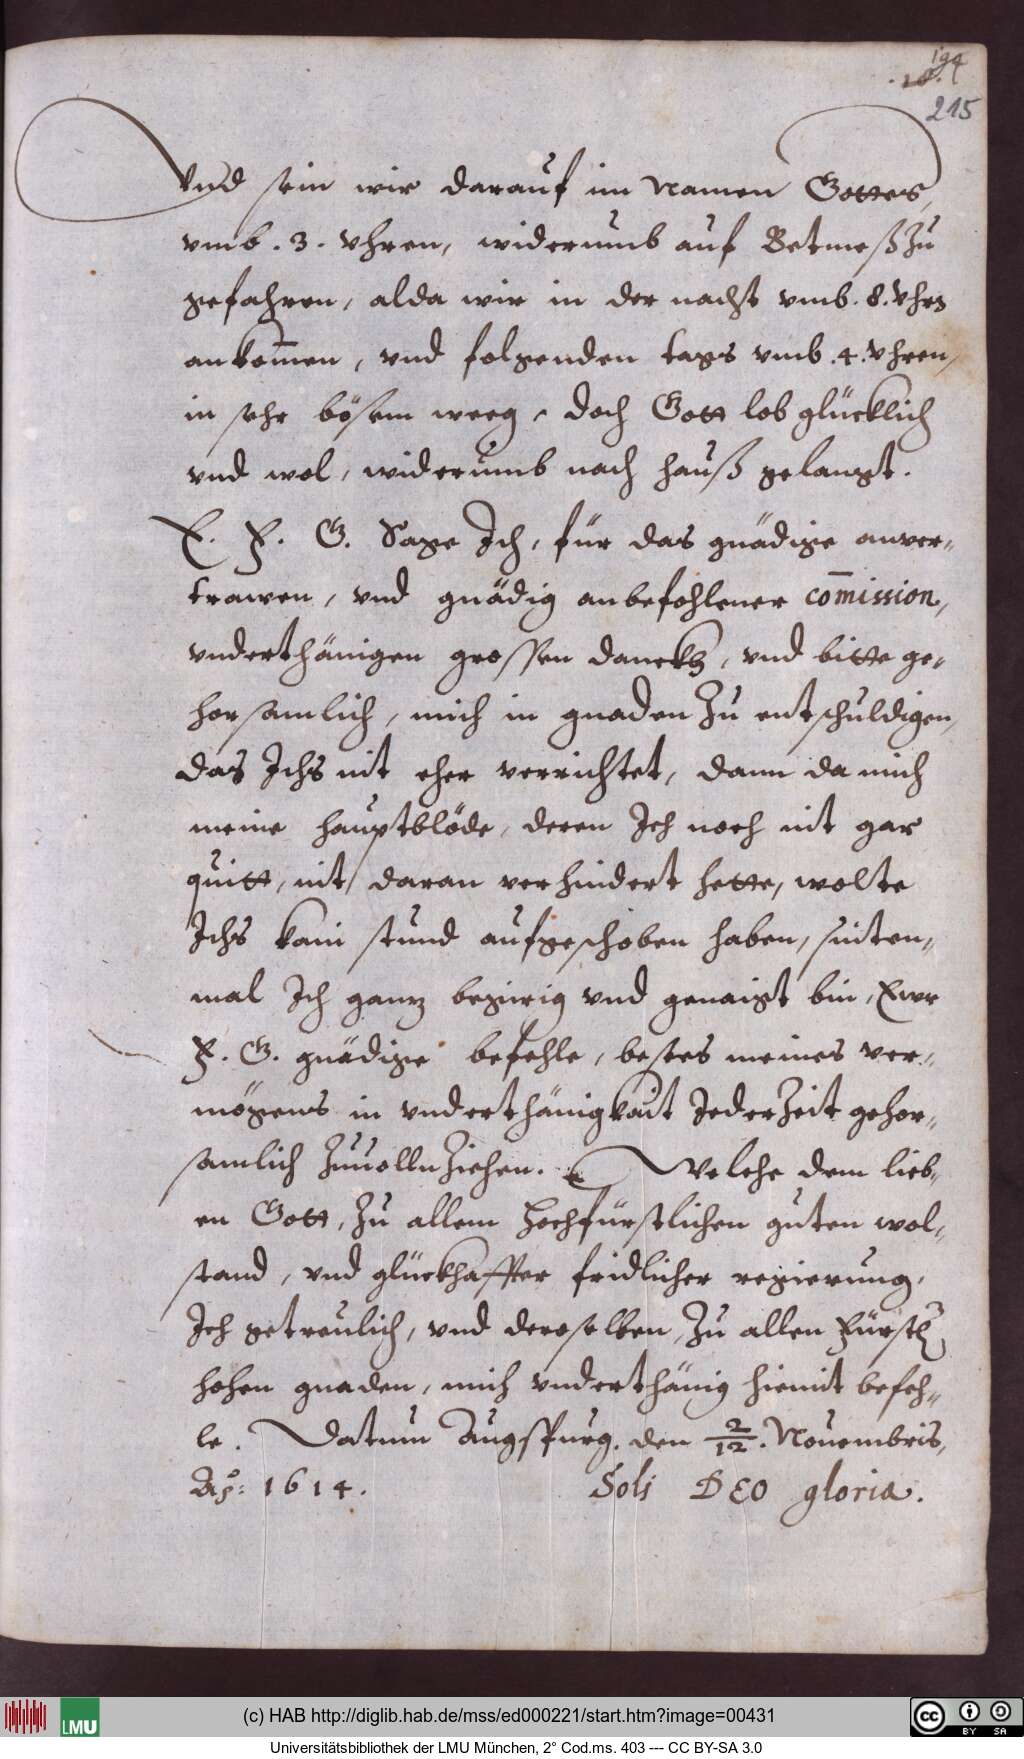 194
215
Vnd sein wir darauf im Namen Gottes,
vmb . 3 . Vhren, widerumb auf Betmeß zu
gefahren, alda wir in der nacht vmb . 8 . Vhrn
ankom̄en, vnd folgenden tags vmb . 4 . Vhren,
in sehr bösem weeg, doch Gott lob glücklich
vnd wol, widerumb nach hauß gelangt.
E. F. G. Sage Ich, für das gnädige anver-
trawen, vnd gnädig anbefohlener com̄ission,
vnderthänigen grossen danckh, vnd bitte ge-
horsamlich, mich in gnaden zu entschuldigen,
das Ichs nit eher verrichtet, dann da mich
meine hauptblöde, deren Ich noch nit gar
quitt, nit daran verhindert hette, wolte
Ichs kain stund aufgeschoben haben, sinten-
mal Ich ganz begirig vnd genaigt bin, Ewr
F. G. gnädige befehle, bestes meines ver-
mögens in vnderthänigkait Jederzeit gehor-
samlich zuuollnziehen. Welche dem lieb-
en Gott, zu allem hochfürstlichen guten wol-
stand, vnd glückhaffter fridlicher regierung,
Ich getreulich, vnd deroselben, zu allen Fürstl
hohen gnaden, mich vnderthänig hiemit befeh-
le. Datum Augspurg, den 2/12. Nouembris,
Aº: 1614. Soli DEO gloria.
LMU
(c) HAB http://diglib.hab.de/mss/ed000221/start.htm?image=00431
cc BY SA
Universitätsbibliothek der LMU München, 2° Cod.ms. 403 --- CC BY-SA 3.0